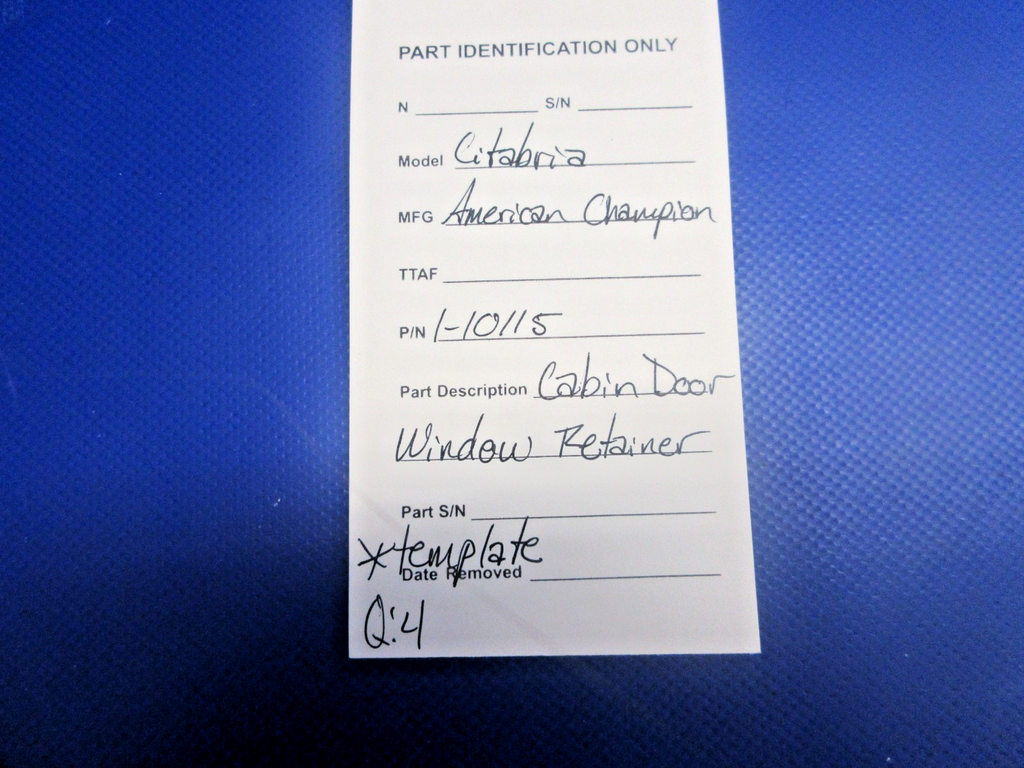 PART IDENTIFICATION ONLY
N S/N
Model Citabria
MFG American Champion
TTAF
P/N 1-10115
Part Description Cabin Door
Window Retainer
Part S/N
*template
Date Removed
Q:4